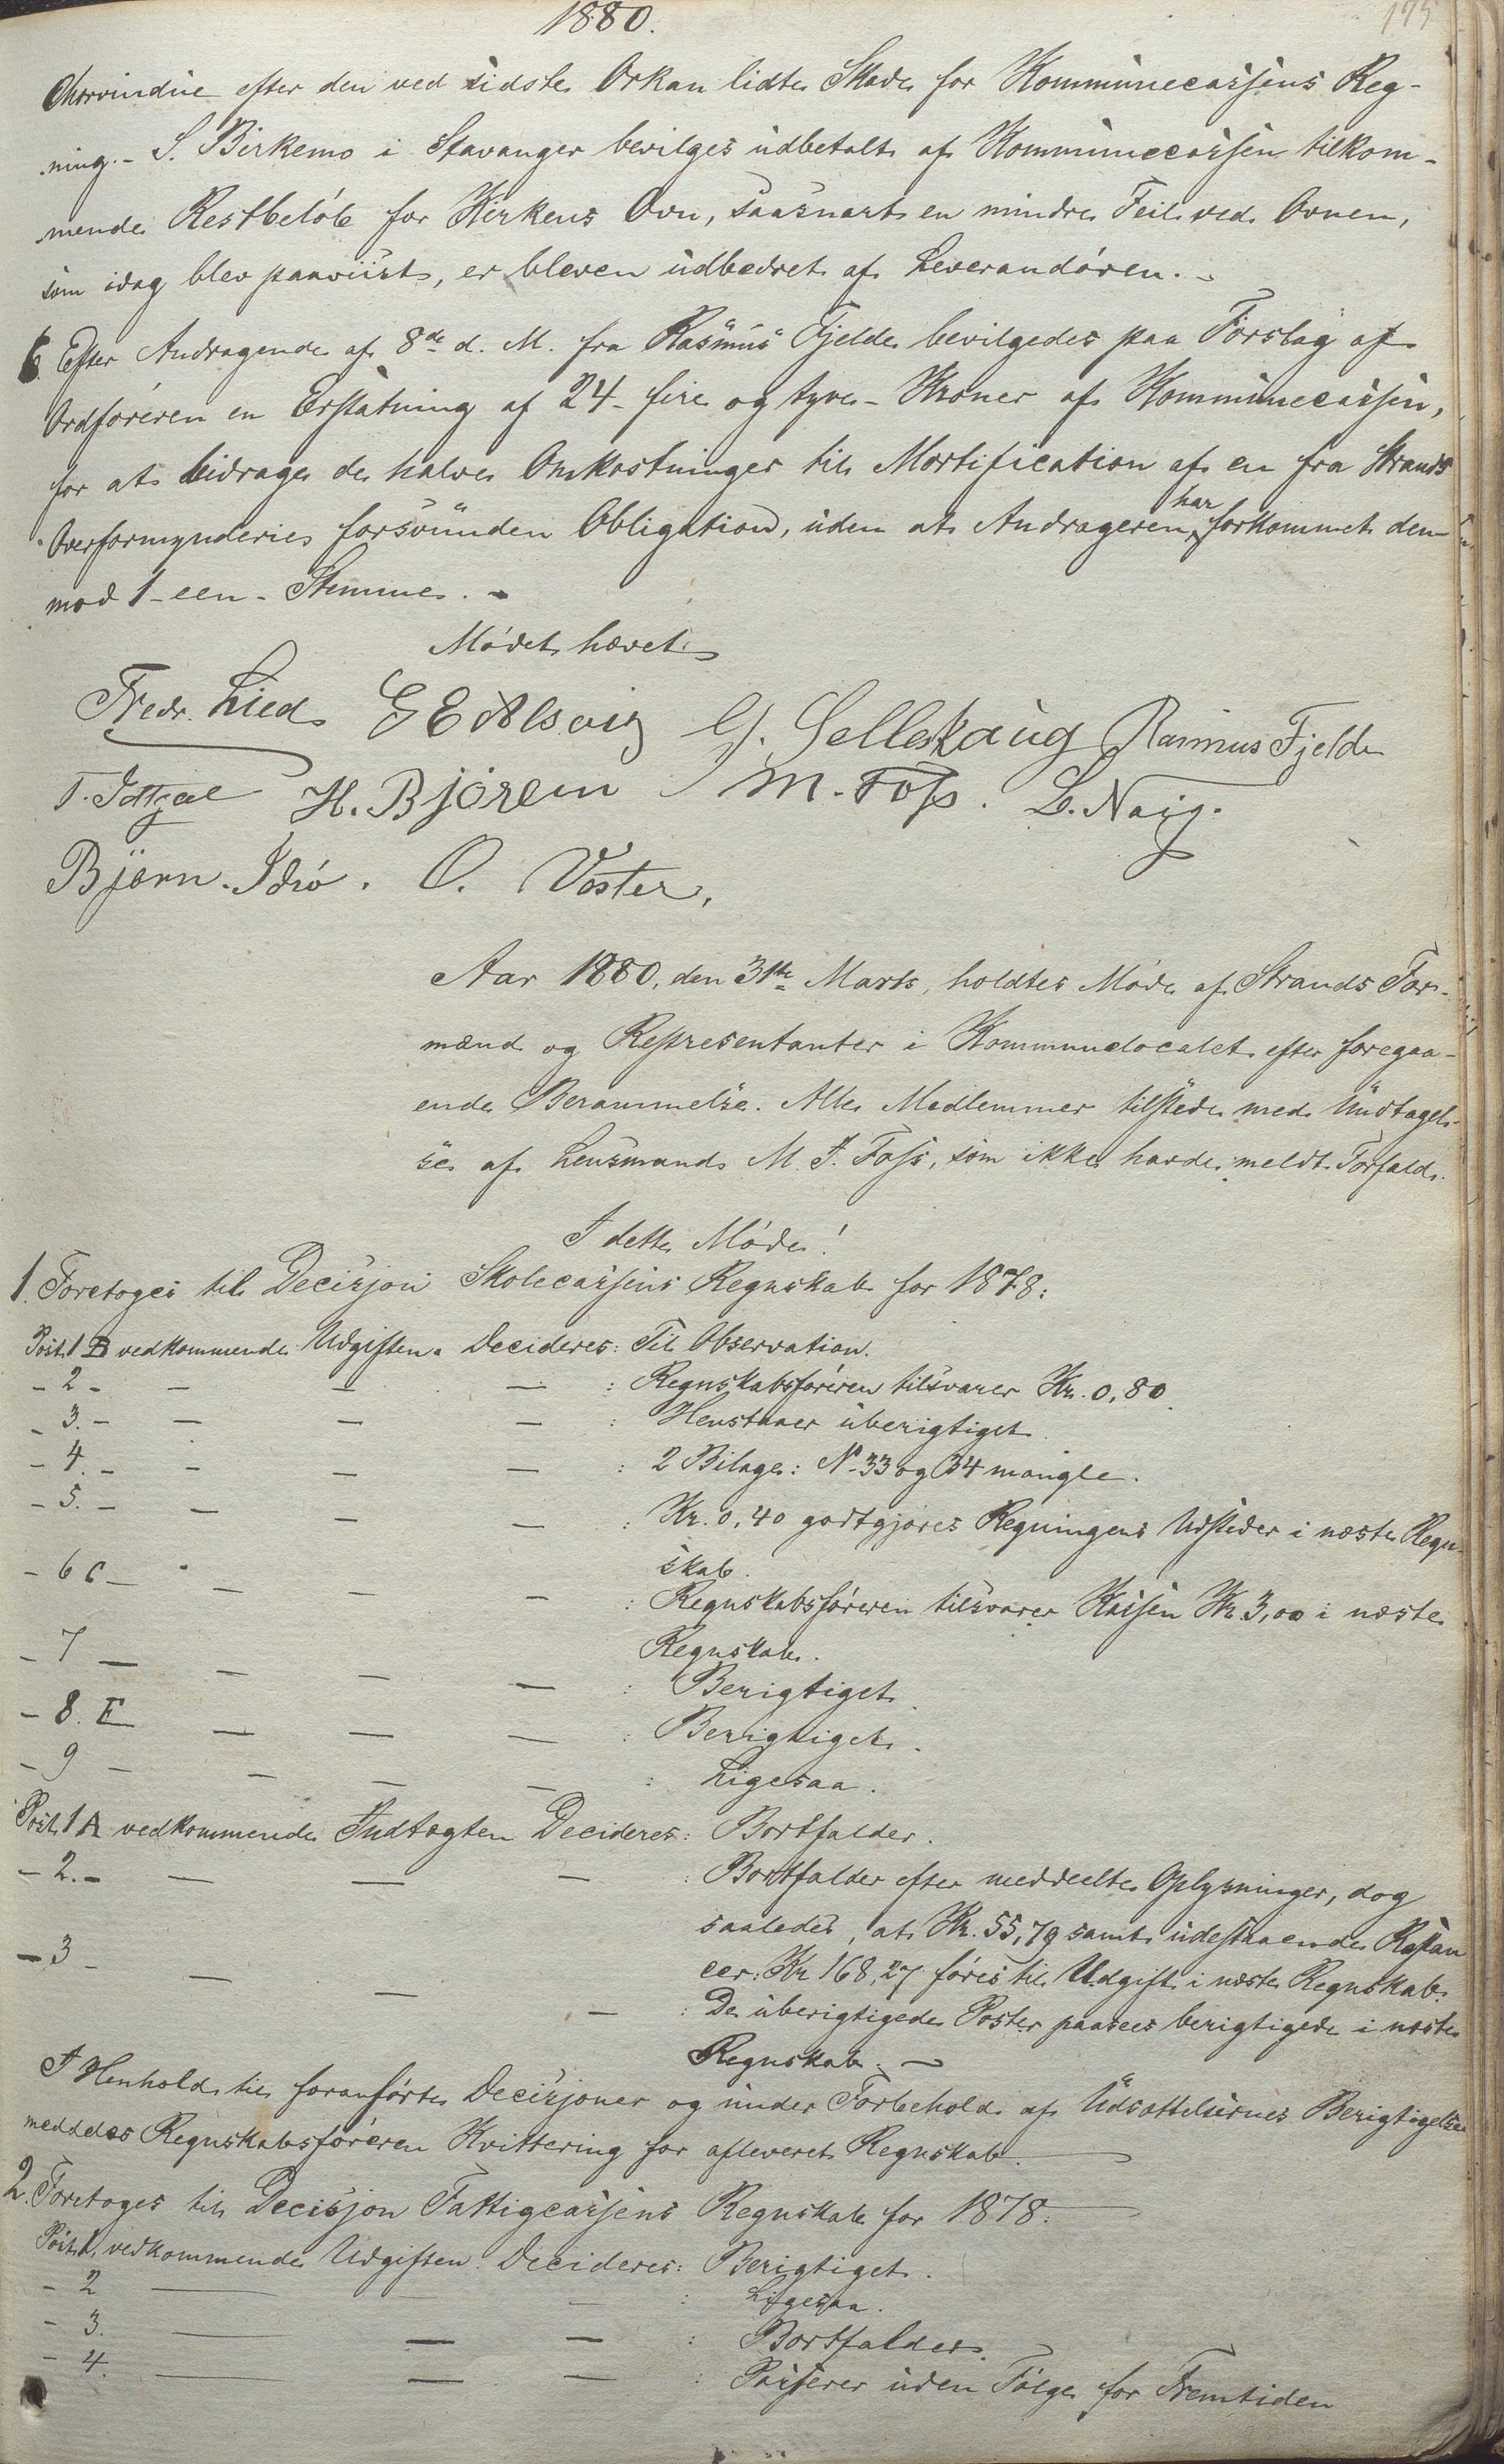 1880.
175
Chorvindue efter den ved sidste Orkan lidte Skade for Kommunecassens Reg-
ning. - S. Birkemo i Stavanger bevilges udbetalt af Kommunecassen tilkom-
mende Restbeløb for Kirkens Ovn, saasnart en mindre Feil ved Ovnen,
som idag blev paaviist, er bleven udbedret af Leverandøren. -
6. Efter Andragende af 8de d. M. fra Rasmus Fjelde bevilgedes paa Forslag af
Ordføreren en Erstatning af 24 - fire og tyve - Kroner af Kommunecassen,
for at bidrage de halve Omkostninger til Mortification af en fra Strands
Overformynderie forsvunden Obligation, uden at Andrageren har forkommet den
mod 1 - een - Stemme. -
Mødet hævet
Fredr. Lied G E Alsvig G. Selleskaug Rasmus Fjelde
T. Idtjøe H. Bjøreim M. Foss. L. Nag.
Bjørn Idsø. O. Voster.
Aar 1880, den 31te Marts, holdtes Møde af Strands For-
mænd og Representanter i Kommunelocalet efter foregaa-
ende Berammelse. Alle Medlemmer tilstede med Undtagel-
se af Lensmand M. J. Foss, som ikke havde meldt Forfald.
I dette Møde!
1. Foretoges til Decisjon Skolecassens Regnskab for 1878:
Post 1 B vedkommende Udgiften Decideres: Til Observation.
- 2 - — — — : Regnskabsføreren tilsvarer Kr. 0,80.
- 3. - — — — : Henstaaer uberigtiget.
- 4. - — — — : 2 Bilage: N. 33 og 34 mangle.
- 5. - — — — : Kr. 0,40 godtgjøres Regningens Udsteder i næste Regn-
skab.
- 6 C - — — — : Regnskabsføreren tilsvarer Kassen Kr. 3,00 i næste
Regnskab.
- 7 — — — — : Berigtiget.
- 8. E — — — : Berigtiget.
- 9 - — — — : Ligesaa.
Post 1 A vedkommende Indtægten Decideres: Bortfalder.
- 2. - — — — : Bortfalder efter meddeelte Oplysninger, dog
saaledes, at Kr. 55,79 samt udestaaende Restan
cer: Kr 168,27 føres til Udgift i næste Regnskab.
- 3 - — — — : De uberigtigede Poster paasees berigtigede i næste
Regnskab. -
I Henhold til foranførte Decisjoner og under Forbehold af Udsættelsernes Berigtigelse
meddeles Regnskabsføreren Kvittering for afleveret Regnskab.
2. Foretoges til Decisjon Fattigcassens Regnskab for 1878.
Post 1. vedkommende Udgiften Decideres: Berigtiget.
- 2 — — — : Ligesaa.
- 3. — — — : Bortfalder.
- 4. — — — : Passerer uden Følge for Fremtiden